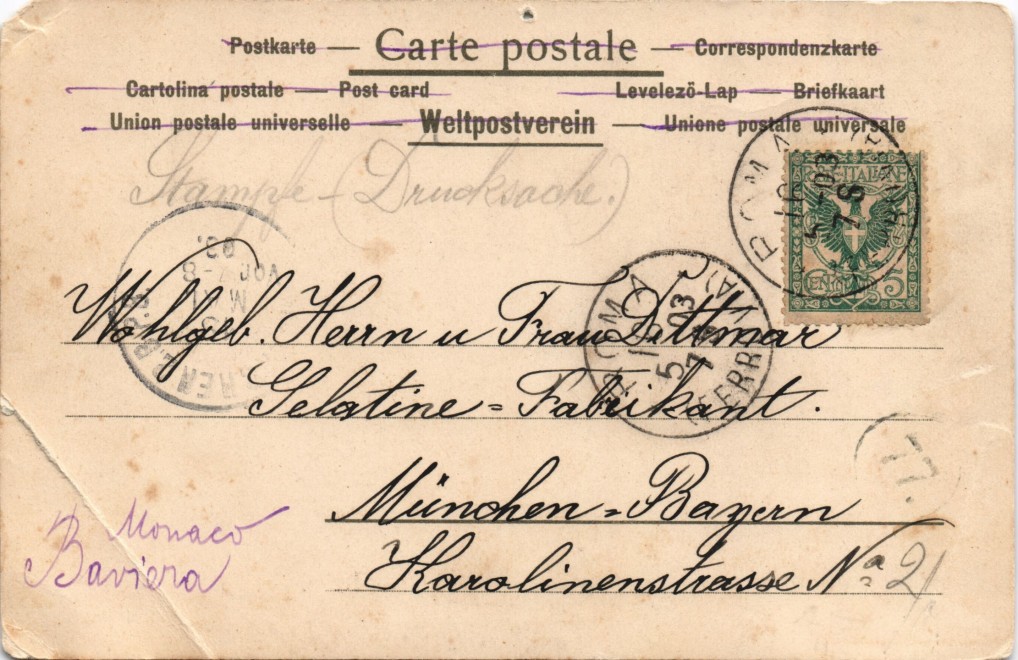 Postkarte — Carte postale — Correspondenzkarte
Cartolina postale — Post card Levelezö-Lap — Briefkaart
Union postale universelle — Weltpostverein — Unione postale universale
Stampe - (Drucksache.)
ROMA
5
7 S
POSTE ITALIANE
CENT. 5
03.
7-8
ROMA
5
7
FERROVIA
Wohlgeb. Herrn u Frau Dittmar
Gelatine = Fabrikant.
77.
München = Bayern
Karolinenstrasse Nº 21
Monaco
Baviera